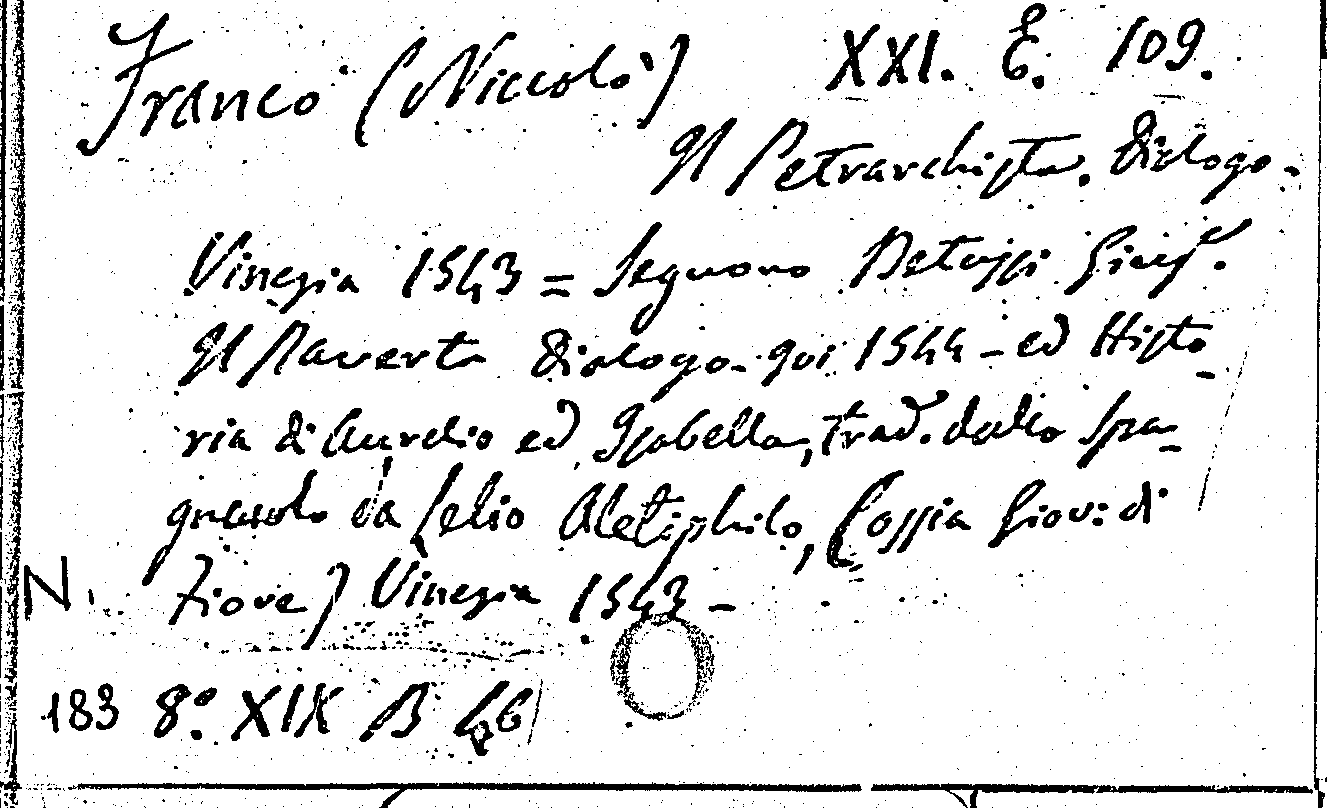 Franco (Niccolò) XXI. E. 109.
Il Petrarchista. Dialogo.
Vinegia 1543 = Seguono Betussi Gius.
Il Raverta Dialogo. qui 1544 - ed Histo-
ria di Aurelio ed Isabella, trad. dallo Spa-
gnuolo da Lelio Aletiphilo, (ossia Giov: di
Fiore) Vinegia 1543 -
N.
183 8.° XIX B 46